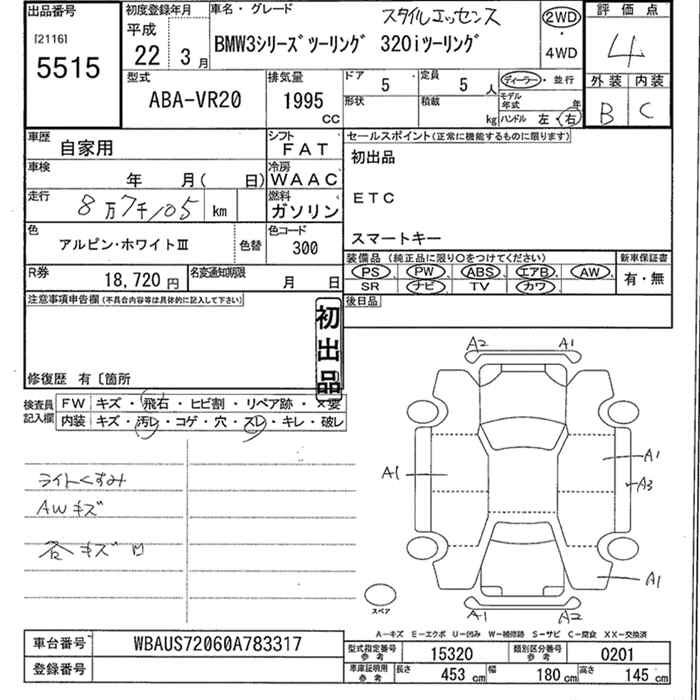 出品番号
[2116]
5515
初度登録年月
平成
22年 3月
車名・グレード
スタイルエッセンス
BMW3シリーズツーリング 320iツーリング
2WD
・
4WD
評価点
4
型式
ABA-VR20
排気量
1995
CC
ドア 5
定員 5人
ディーラー・並行
形状
積載 kg
モデル年式 年
ハンドル 左・右
外装 内装
B C
車歴
自家用
シフト
FAT
車検
年 月( 日)
冷房
WAAC
走行
8万7千105 km
燃料
ガソリン
色
アルピン・ホワイトⅢ
色替
色コード
300
R券
18,720円
名変通知期限
月 日
セールスポイント(正常に機能するものに限ります)
初出品
ETC
スマートキー
装備品(純正品に限り○をつけてください)
PS、PW、ABS、エアB、AW、
SR ナビ TV カワ
新車保証書
有・無
後日品
注意事項申告欄(不具合内容等は具体的に記入して下さい)
初出品
修復歴 有〔箇所
検査員記入欄
FW キズ・飛石・ヒビ割・リペア跡・×要
内装 キズ・汚レ・コゲ・穴・スレ・キレ・破レ
ライトくすみ
AWキズ
各キズ凹
A2 A1
A1 A1
A3
A1
A1 A2
スペア
A-キズ E-エクボ U-凹み W-補修跡 S-サビ C-腐食 XX-交換済
車台番号
WBAUS72060A783317
登録番号
型式指定番号参考
15320
類別区分番号参考
0201
車庫証明用参考
長さ 453cm
幅 180cm
高さ 145cm